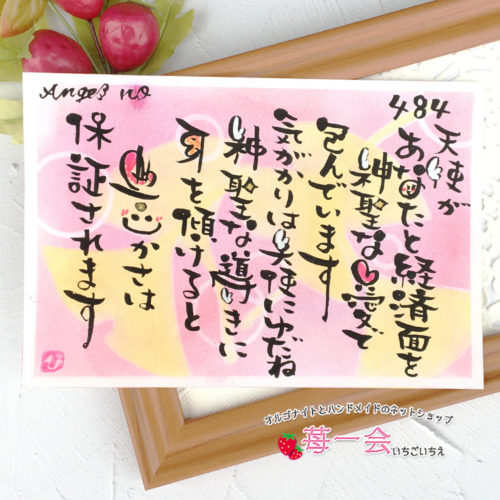 Angel no
484
天使が
あなたと経済面を
神聖な愛で
包んでいます
気がかりは天使にゆだね
神聖な導きに
耳を傾けると
豊かさは
保証されます
オルゴナイトとハンドメイドのネットショップ
苺一会 いちごいちえ